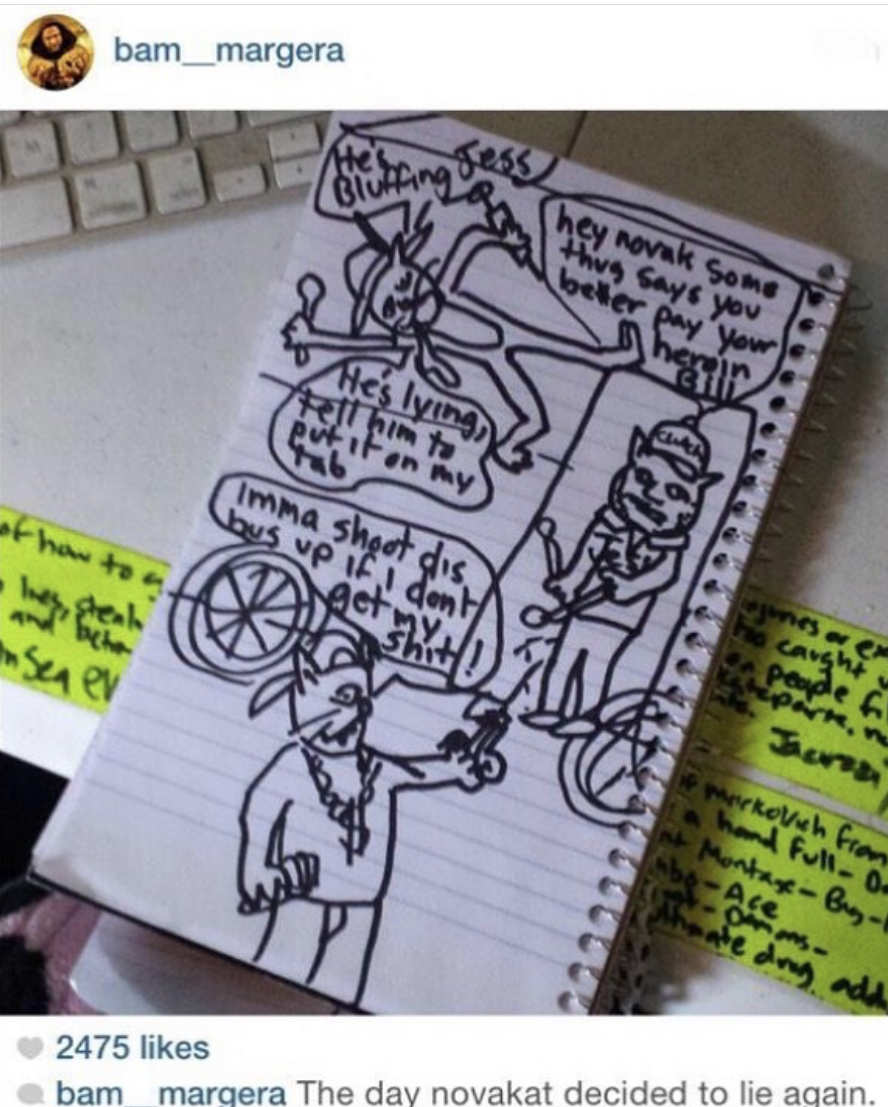 bam__margera
Jess
He's
Bluffing
hey novak some
thug says you
better pay your
heroin
Bill
He's lying,
tell him to
put it on my
tab
Clutch
Imma shoot dis
bus up if I dont
get my
shit!
of how to
lies, steals
and
Sea
or ex
too caught
on people
Jackson
Markovich from
a hand full-
Montage-
-Ace
drug
2475 likes
bam__margera The day novakat decided to lie again.